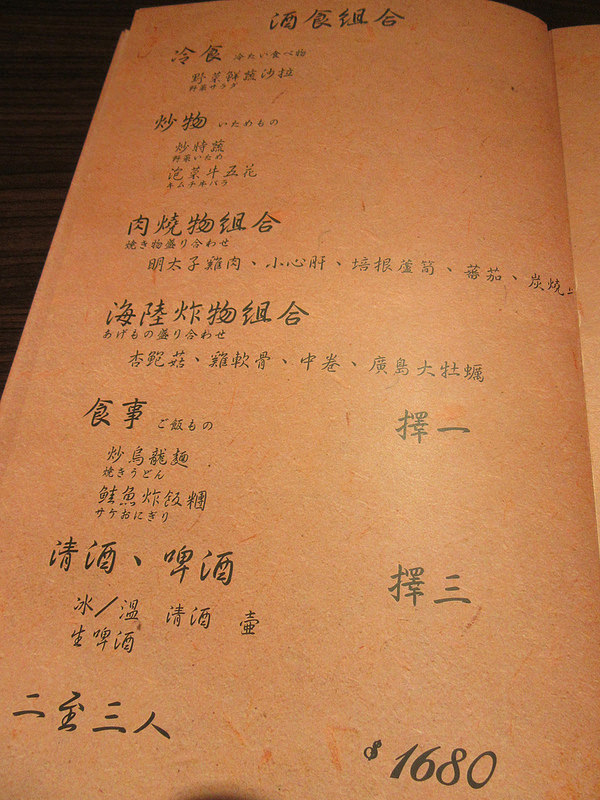 酒食組合
冷食 冷たい食べ物
野菜鮮蔬沙拉
野菜サラダ
炒物 いためもの
炒時蔬
野菜いため
泡菜牛五花
キムチ牛バラ
肉燒物組合
焼き物盛り合わせ
明太子雞肉、小心肝、培根蘆筍、蕃茄、炭燒
海陸炸物組合
あげもの盛り合わせ
杏鮑菇、雞軟骨、中卷、廣島大牡蠣
食事 ご飯もの 擇一
炒烏龍麵
焼きうどん
鮭魚炸飯糰
サケおにぎり
清酒、啤酒 擇三
冰/溫 清酒 壺
生啤酒
二至三人
$1680